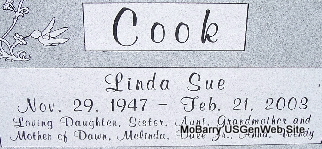 Cook
Linda Sue
Nov. 29, 1947 - Feb. 21, 2003
Loving Daughter, Sister, Aunt, Grandmother and
Mother of Dawn, Melinda, Dave Jr., Anna, Wendy
MoBarry USGenWeb Site